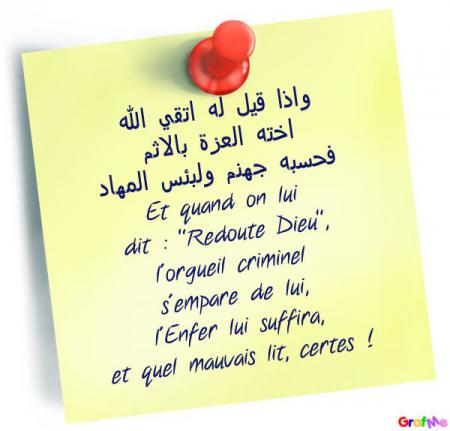 واذا قيل له اتقي الله
اخته العزة بالاثم
فحسبه جهنم ولبئس المهاد
Et quand on lui
dit : "Redoute Dieu",
l'orgueil criminel
s'empare de lui,
l'Enfer lui suffira,
et quel mauvais lit, certes !
GrafMe